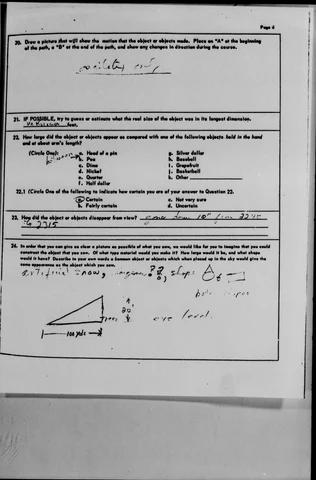 Page 6
20. Draw a picture that will show the motion that the object or objects made. Place an "A" at the beginning
of the path, a "B" at the end of the path, and show any changes in direction during the course.
only
21. IF POSSIBLE, try to guess or estimate what the real size of the object was in its longest dimension.
feet.
22. How large did the object or objects appear as compared with one of the following objects held in the hand
and at about arm's length?
(Circle One): a. Head of a pin g. Silver dollar
b. Pea h. Baseball
c. Dime i. Grapefruit
d. Nickel j. Basketball
e. Quarter k. Other
f. Half dollar
22.1 (Circle One of the following to indicate how certain you are of your answer to Question 22.
a. Certain c. Not very sure
b. Fairly certain d. Uncertain
23. How did the object or objects disappear from view? gone down 10° from 2245
to 2315
24. In order that you can give as clear a picture as possible of what you saw, we would like for you to imagine that you could
construct the object that you saw. Of what type material would you make it? How large would it be, and what shape
would it have? Describe in your own words a common object or objects which when placed up in the sky would give the
same appearance as the object which you saw.
shape
100 yds
eye level